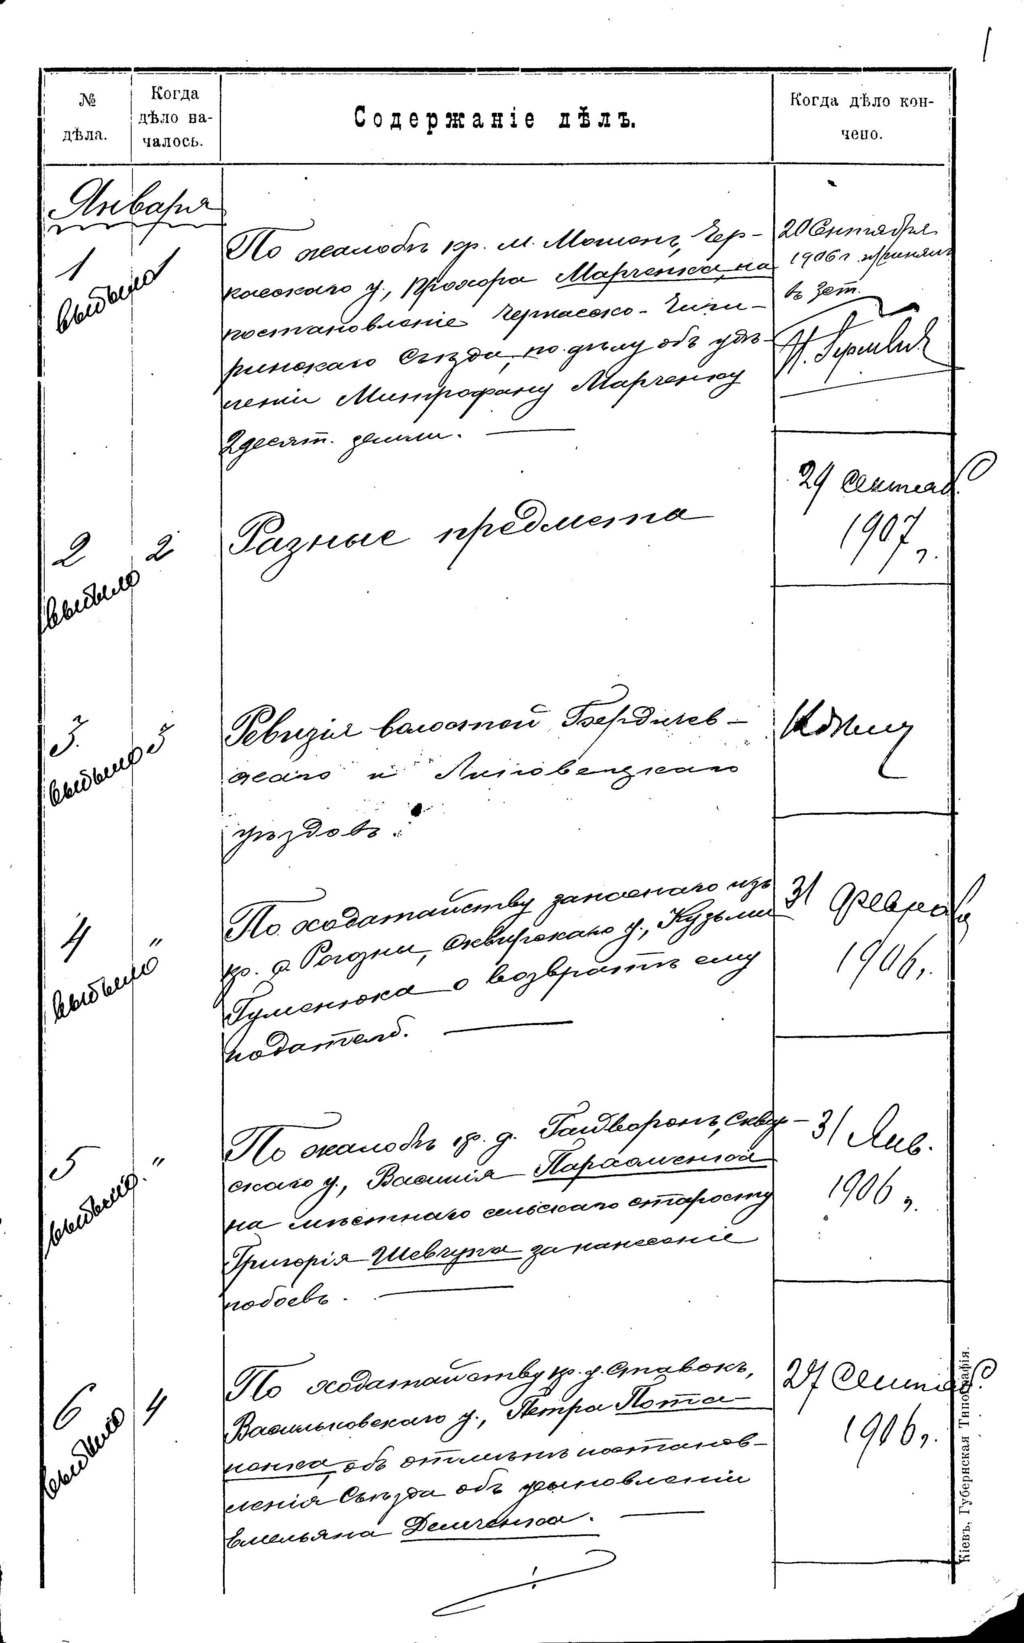 1
№
дѣла.
Когда
дѣло на-
чалось.
Содержаніе дѣлъ.
Когда дѣло кон-
чено.
Января
1
1
выбыло
По жалобѣ кр. м. Мошенъ, Чер-
касскаго у., Прохора Марченка, на
постановленіе Черкасско-Чиги-
ринскаго Съѣзда, по дѣлу объ удѣ-
леніи Митрофану Марченку
2 десят. земли.
20 Сентября
1906 г. принялъ
2
2
выбыло
Разные предмета
29 Сентяб.
1907 г.
3.
3
выбыло
Ревизія волостей Бердичев-
скаго и Липовецкаго
уѣздовъ.
4
"
выбыло
По ходатайству запаснаго изъ
кр. с. Рогозни, Сквирскаго у., Кузьмы
Гуменюка о возвратѣ ему
податей.
31 Февраля
1906 г.
5
"
выбыло.
По жалобѣ кр. д. Гайворонъ, Сквир-
скаго у., Василія
на мѣстнаго сельскаго старосту
Григорія Шевчука за нанесеніе
побоевъ.
31 Янв.
1906 г.
6
4
выбыло
По ходатайству кр. д. Ставокъ,
Васильковскаго у., Петра Пота-
пенка, объ отмѣнѣ постанов-
ленія Съѣзда объ усыновленіи
Емельяна Демченка.
27 Сентяб.
1906 г.
Кіевъ, Губернская Типографія.